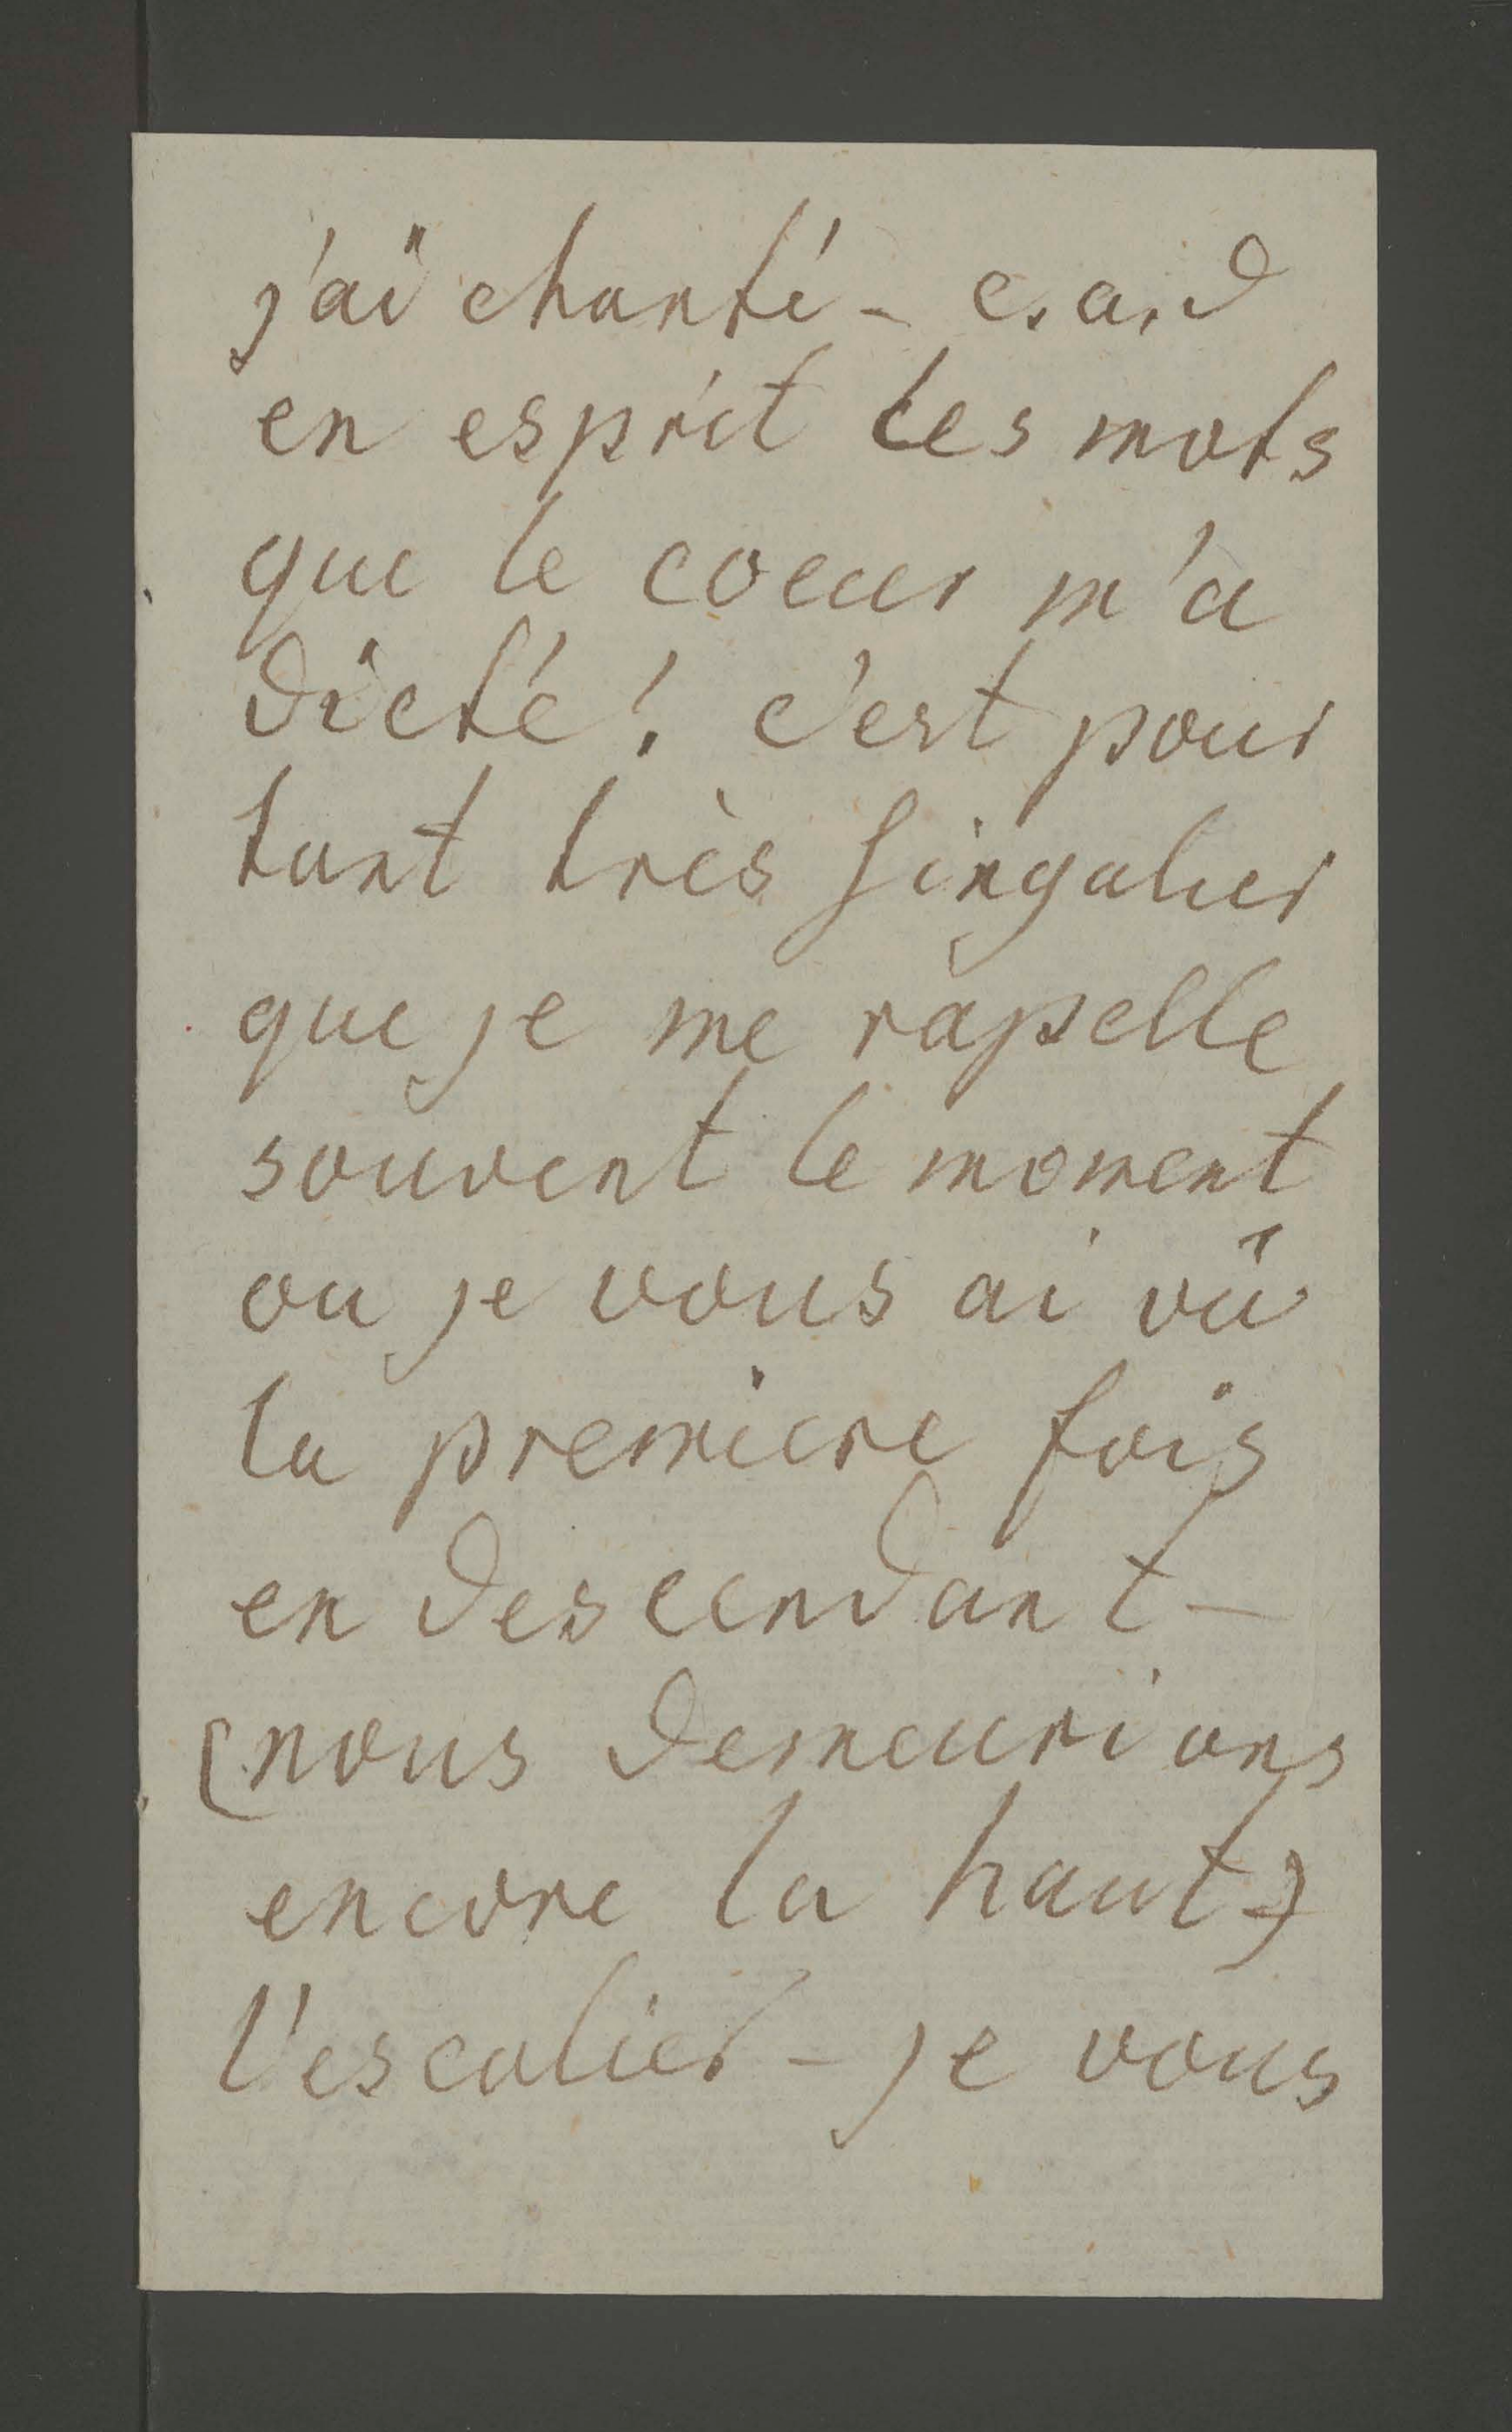 j'ai chanté - c.a.d
en esprit les mots
que le coeur m'a
dicté! c'est pour
tant très singulier
que je me rapelle
souvent le moment
ou je vous ai vû
la premiere fois
en descendant -
(nous demeurions
encore la haut)
l'escalier - je vous